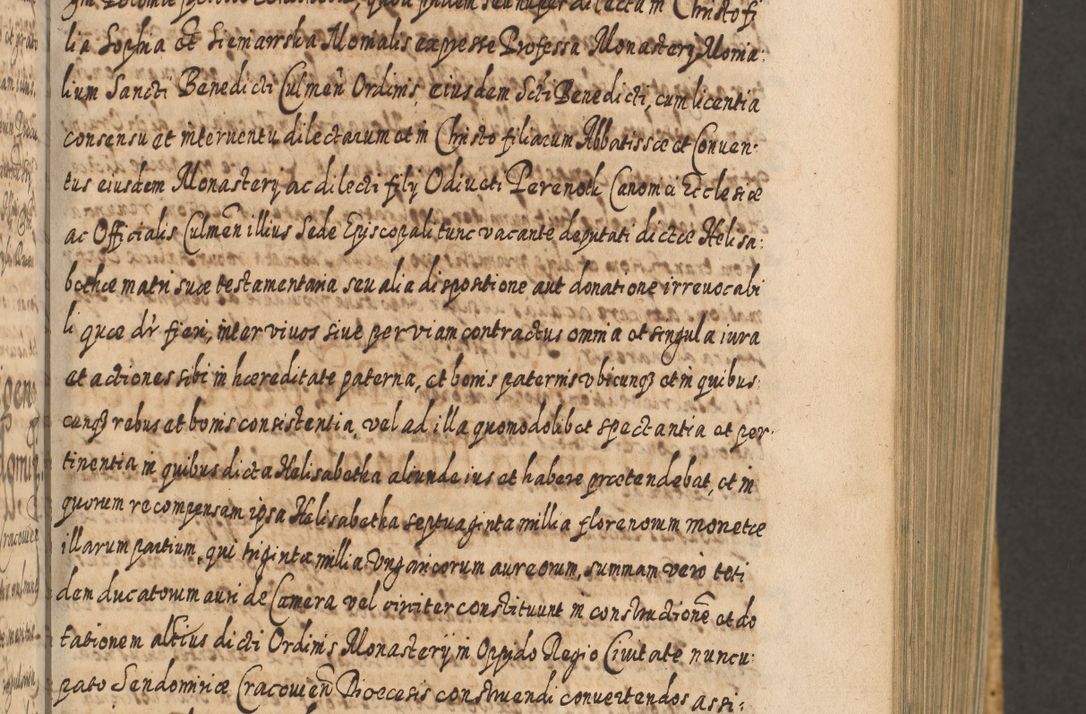 lia Sophia et Siemarrska Monialis expresse Professa Monastery Monia:
lium Sancti Benedicti Culmeñ Ordinis, eiusdem Scti Benedicti, cum licentia
consensu et interuentu dilectarum et in Christo filiarum Abbatissæ et Conuen-
tus eiusdem Monastery, ac dilecti fily Odiueti Perenoti Canomci Ecclesiæ
ac Officialis Culmeñ illius Sede Episcopali tunc vacante deputati dictæ Helisa:
bethæ matri suæ testamentaria seu alia dispositione aut donatione irreuocabi
li quæ dr fieri, inter viuos siue per viam contractus omnia et singula iura
et actiones sibi in hæreditate paterna, et bonis paternis vbicunq3 et in quibus:
cunq3 rebus et bonis consistentia, vel ad illa quomodolibet spectantia et per:
tinentia in quibus dicta Helisabetha aliunde ius et habere prætendebat, et in
quorum recompensam ipsa Helisabetha septuaginta millia florenorum monetæ
illarum partium, qui triginta millia Vngaricorum aureorum, summam vero toti
dem ducatorum auri de Camera vel circiter constituunt in constructionē et do
tationem alterius dicti Ordinis Monastery in Oppido Regio Ciuitate nuncu:
pato Sendomiriæ Cracouieñ Dioecesis construendi conuertendos assi: